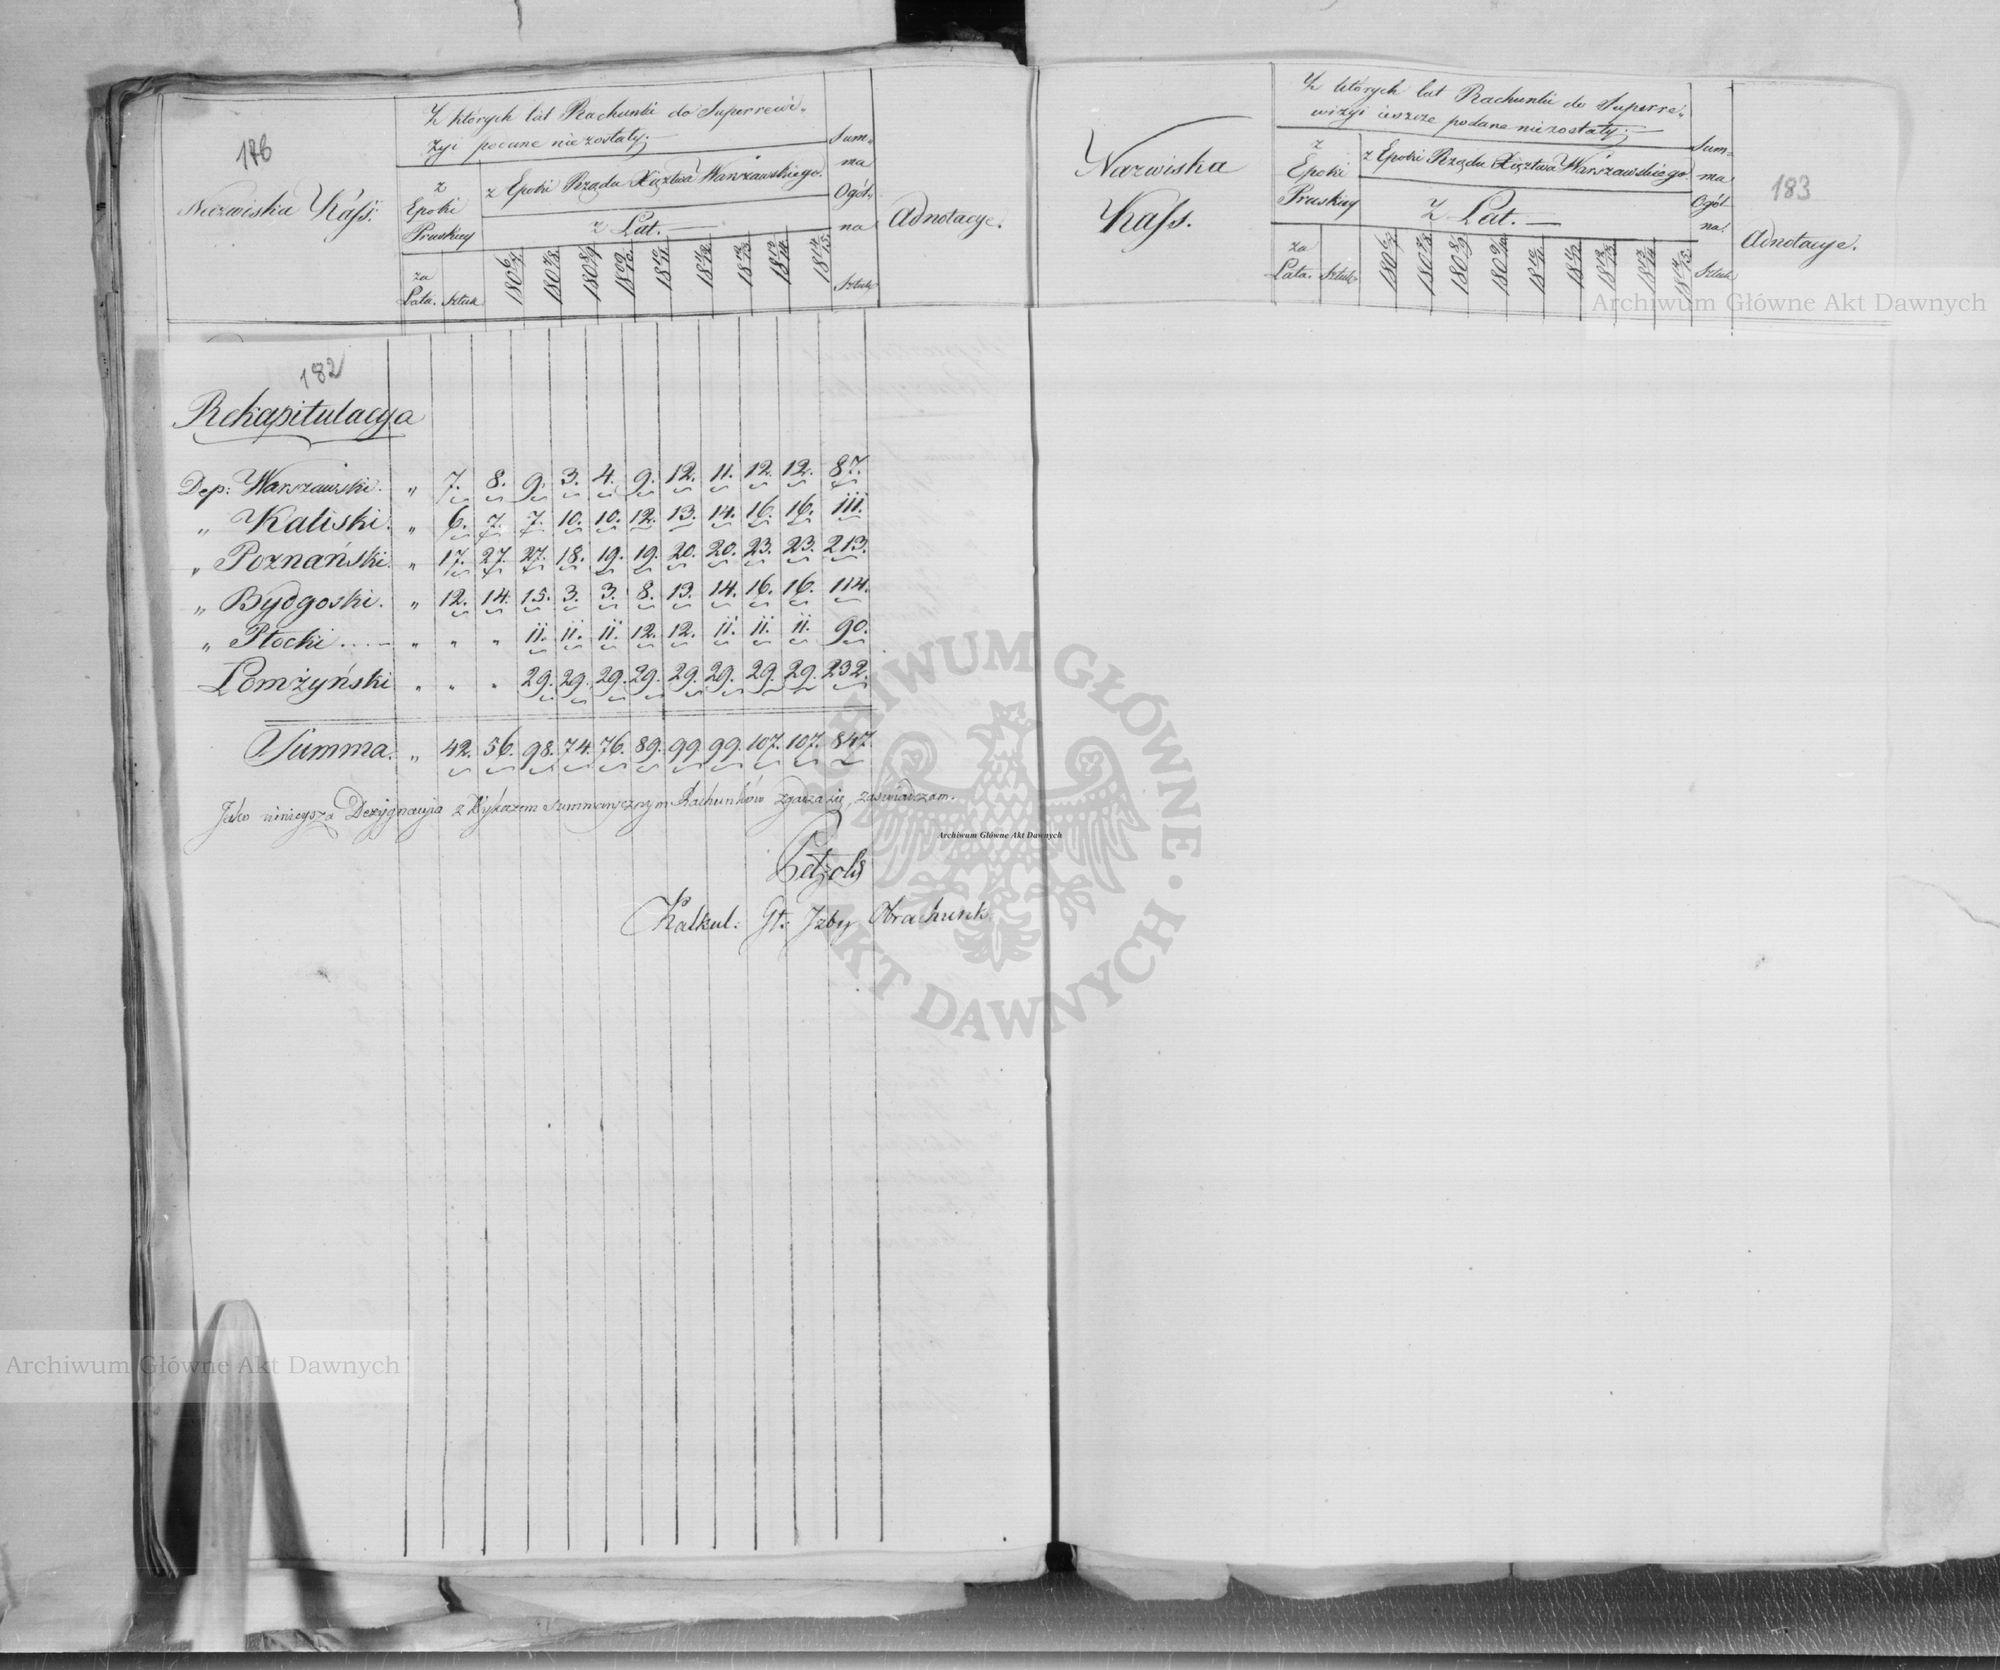 176
Nazwiska Kass:
Z których lat Rachunki do Superrewi-
zyi podane nie zostały;
z Epoki Pruskiey
z Epoki Rządu Xięztwa Warszawskiego.
z Lat.
za Lata. Sztuk
180 6/7 180 7/8 180 8/9 1809/10. 18 10/11 18 11/12 18 12/13 18 13/14 18 14/15.
Summa Ogólna Sztuk
Adnotacye.
182
Rekapitulacya
Dep: Warszawski. " 7. 8. 9. 3. 4. 9. 12. 11. 12. 12. 87.
" Kaliski. " 6. 7. 7. 10. 10. 12. 13. 14. 16. 16. 111.
" Poznański. " 17. 27. 27. 18. 19. 19. 20. 20. 23. 23. 213.
" Bydgoski. " 12. 14. 15. 3. 3. 8. 13. 14. 16. 16. 114.
" Płocki .... " " " 11. 11. 11. 12. 12. 11. 11. 11. 90.
Łomżyński " " " 29. 29. 29. 29. 29. 29. 29. 29. 232.
Summa. " 42. 56. 98. 74. 76. 89. 99. 99. 107. 107. 847.
Jako ninieysza Dezygnacyia z Wykazem Summarycznym Rachunków zgadza się, zaświadczam.
Kalkul: Gł: Izby Obrachunk:
Nazwiska
Kass.
Z których lat Rachunki do Superre-
wizyi ieszcze podane nie zostały;
z Epoki Pruskiey
z Epoki Rządu Xięztwa Warszawskiego
Z Lat.
za Lata. Sztuk
180 6/7 180 7/8 180 8/9 180 9/10 18 10/11 18 11/12 18 12/13 18 13/14 18 14/15
Summa Ogólna. Sztuk
183
Adnotacye.
Archiwum Główne Akt Dawnych
ARCHIWUM GŁÓWNE
AKT DAWNYCH
Archiwum Główne Akt Dawnych
Archiwum Główne Akt Dawnych